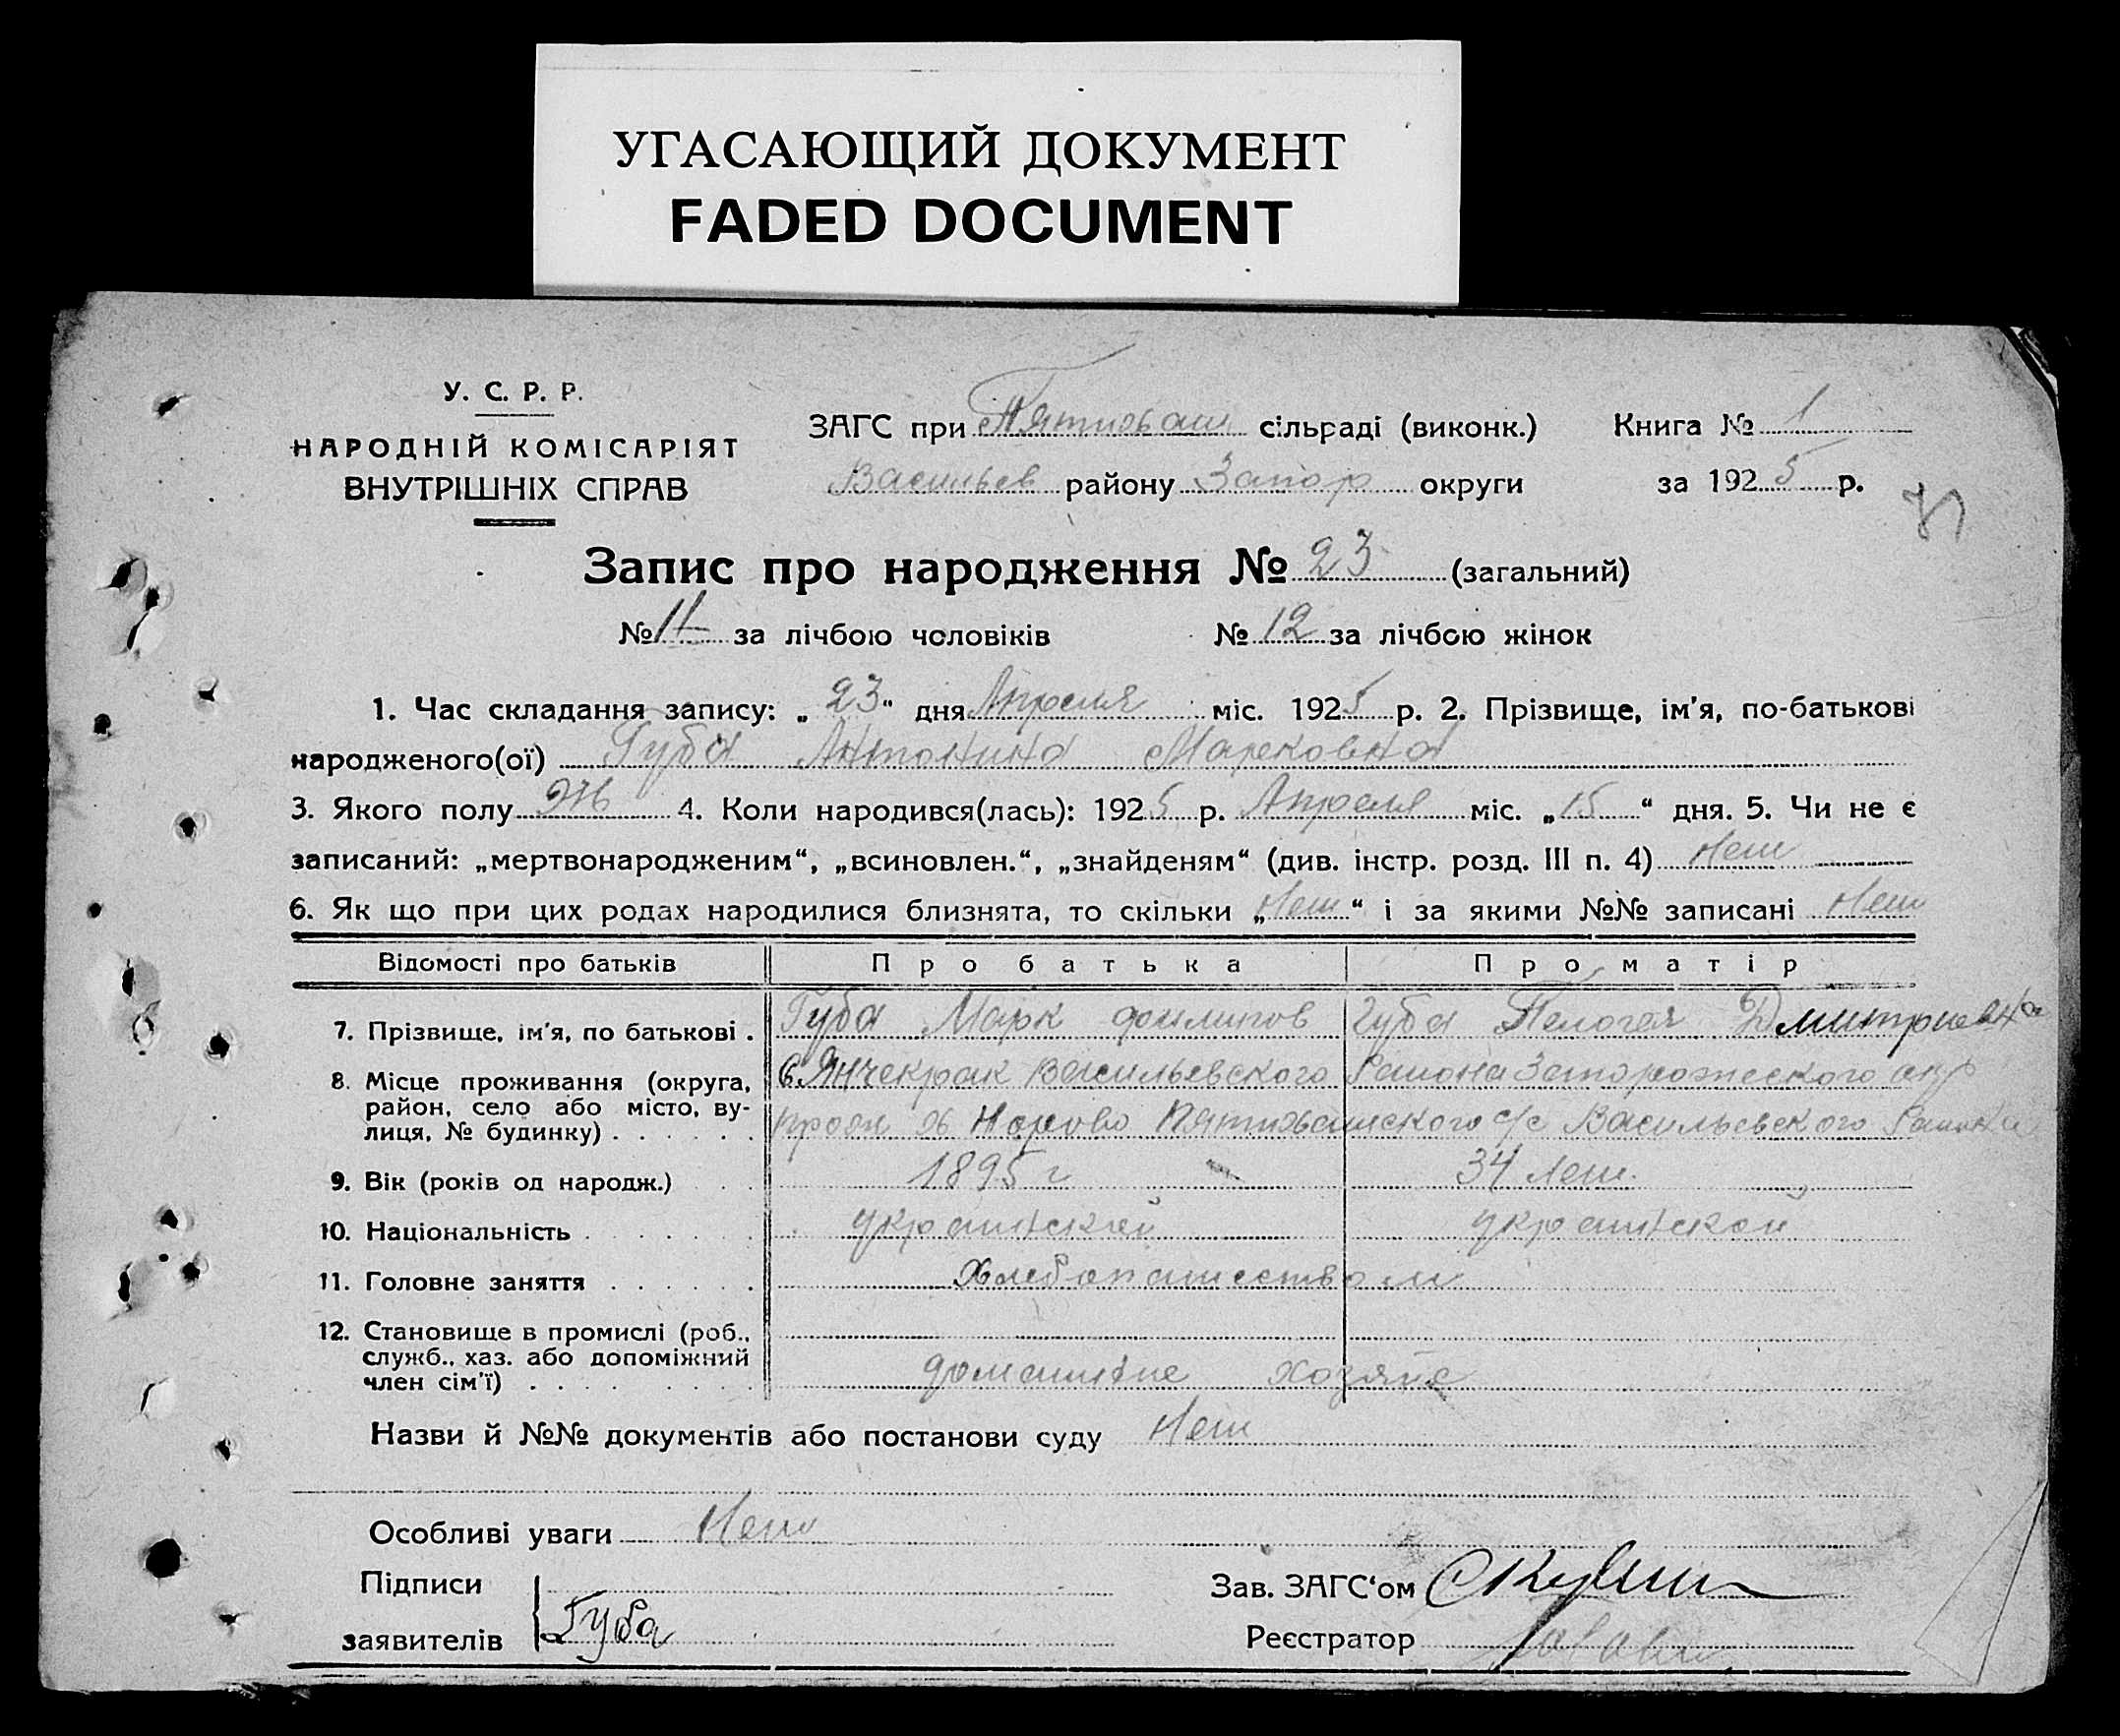 УГАСАЮЩИЙ ДОКУМЕНТ
FADED DOCUMENT
У. С. Р. Р.
НАРОДНІЙ КОМІСАРІЯТ
ВНУТРІШНІХ СПРАВ
ЗАГС при Пятихат сільраді (виконк.) Книга № 1
Васильев району Запор округи за 1925 р.
Запис про народження № 23 (загальний)
№ 11 за лічбою чоловіків № 12 за лічбою жінок
1. Час складання запису: „23" дня Апреля міс. 1925 р. 2. Прізвище, ім'я, по-батькові
народженого(ої) Губа Антонина Марковна
3. Якого полу Ж 4. Коли народився(лась): 1925 р. Апреля міс. „15" дня. 5. Чи не є
записаний: „мертвонародженим", „всиновлен.", „знайденям" (див. інстр. розд. III п. 4) Нет
6. Як що при цих родах народилися близнята, то скільки „Нет" і за якими №№ записані Нет
Відомості про батьків Про батька Про матір
7. Прізвище, ім'я, по батькові . Губа Марк Филипов Губа Пелогея Дмитриевна
8. Місце проживання (округа, район, село або місто, вулиця, № будинку) . . . . . . с. Янчекрак Васильевского Района Запорожского окр
прож Нарово Пятихатского с/с Васильевского Района
9. Вік (років од народж.) 1895 г 34 лет.
10. Національність украинский украинской
11. Головне заняття Хлебопашеством
12. Становище в промислі (роб., служб., хаз. або допоміжний член сім'ї) домашние хозяйс
Назви й №№ документів або постанови суду Нет
Особливі уваги Нет
Підписи
заявителів Губа
Зав. ЗАГС'ом
Реєстратор